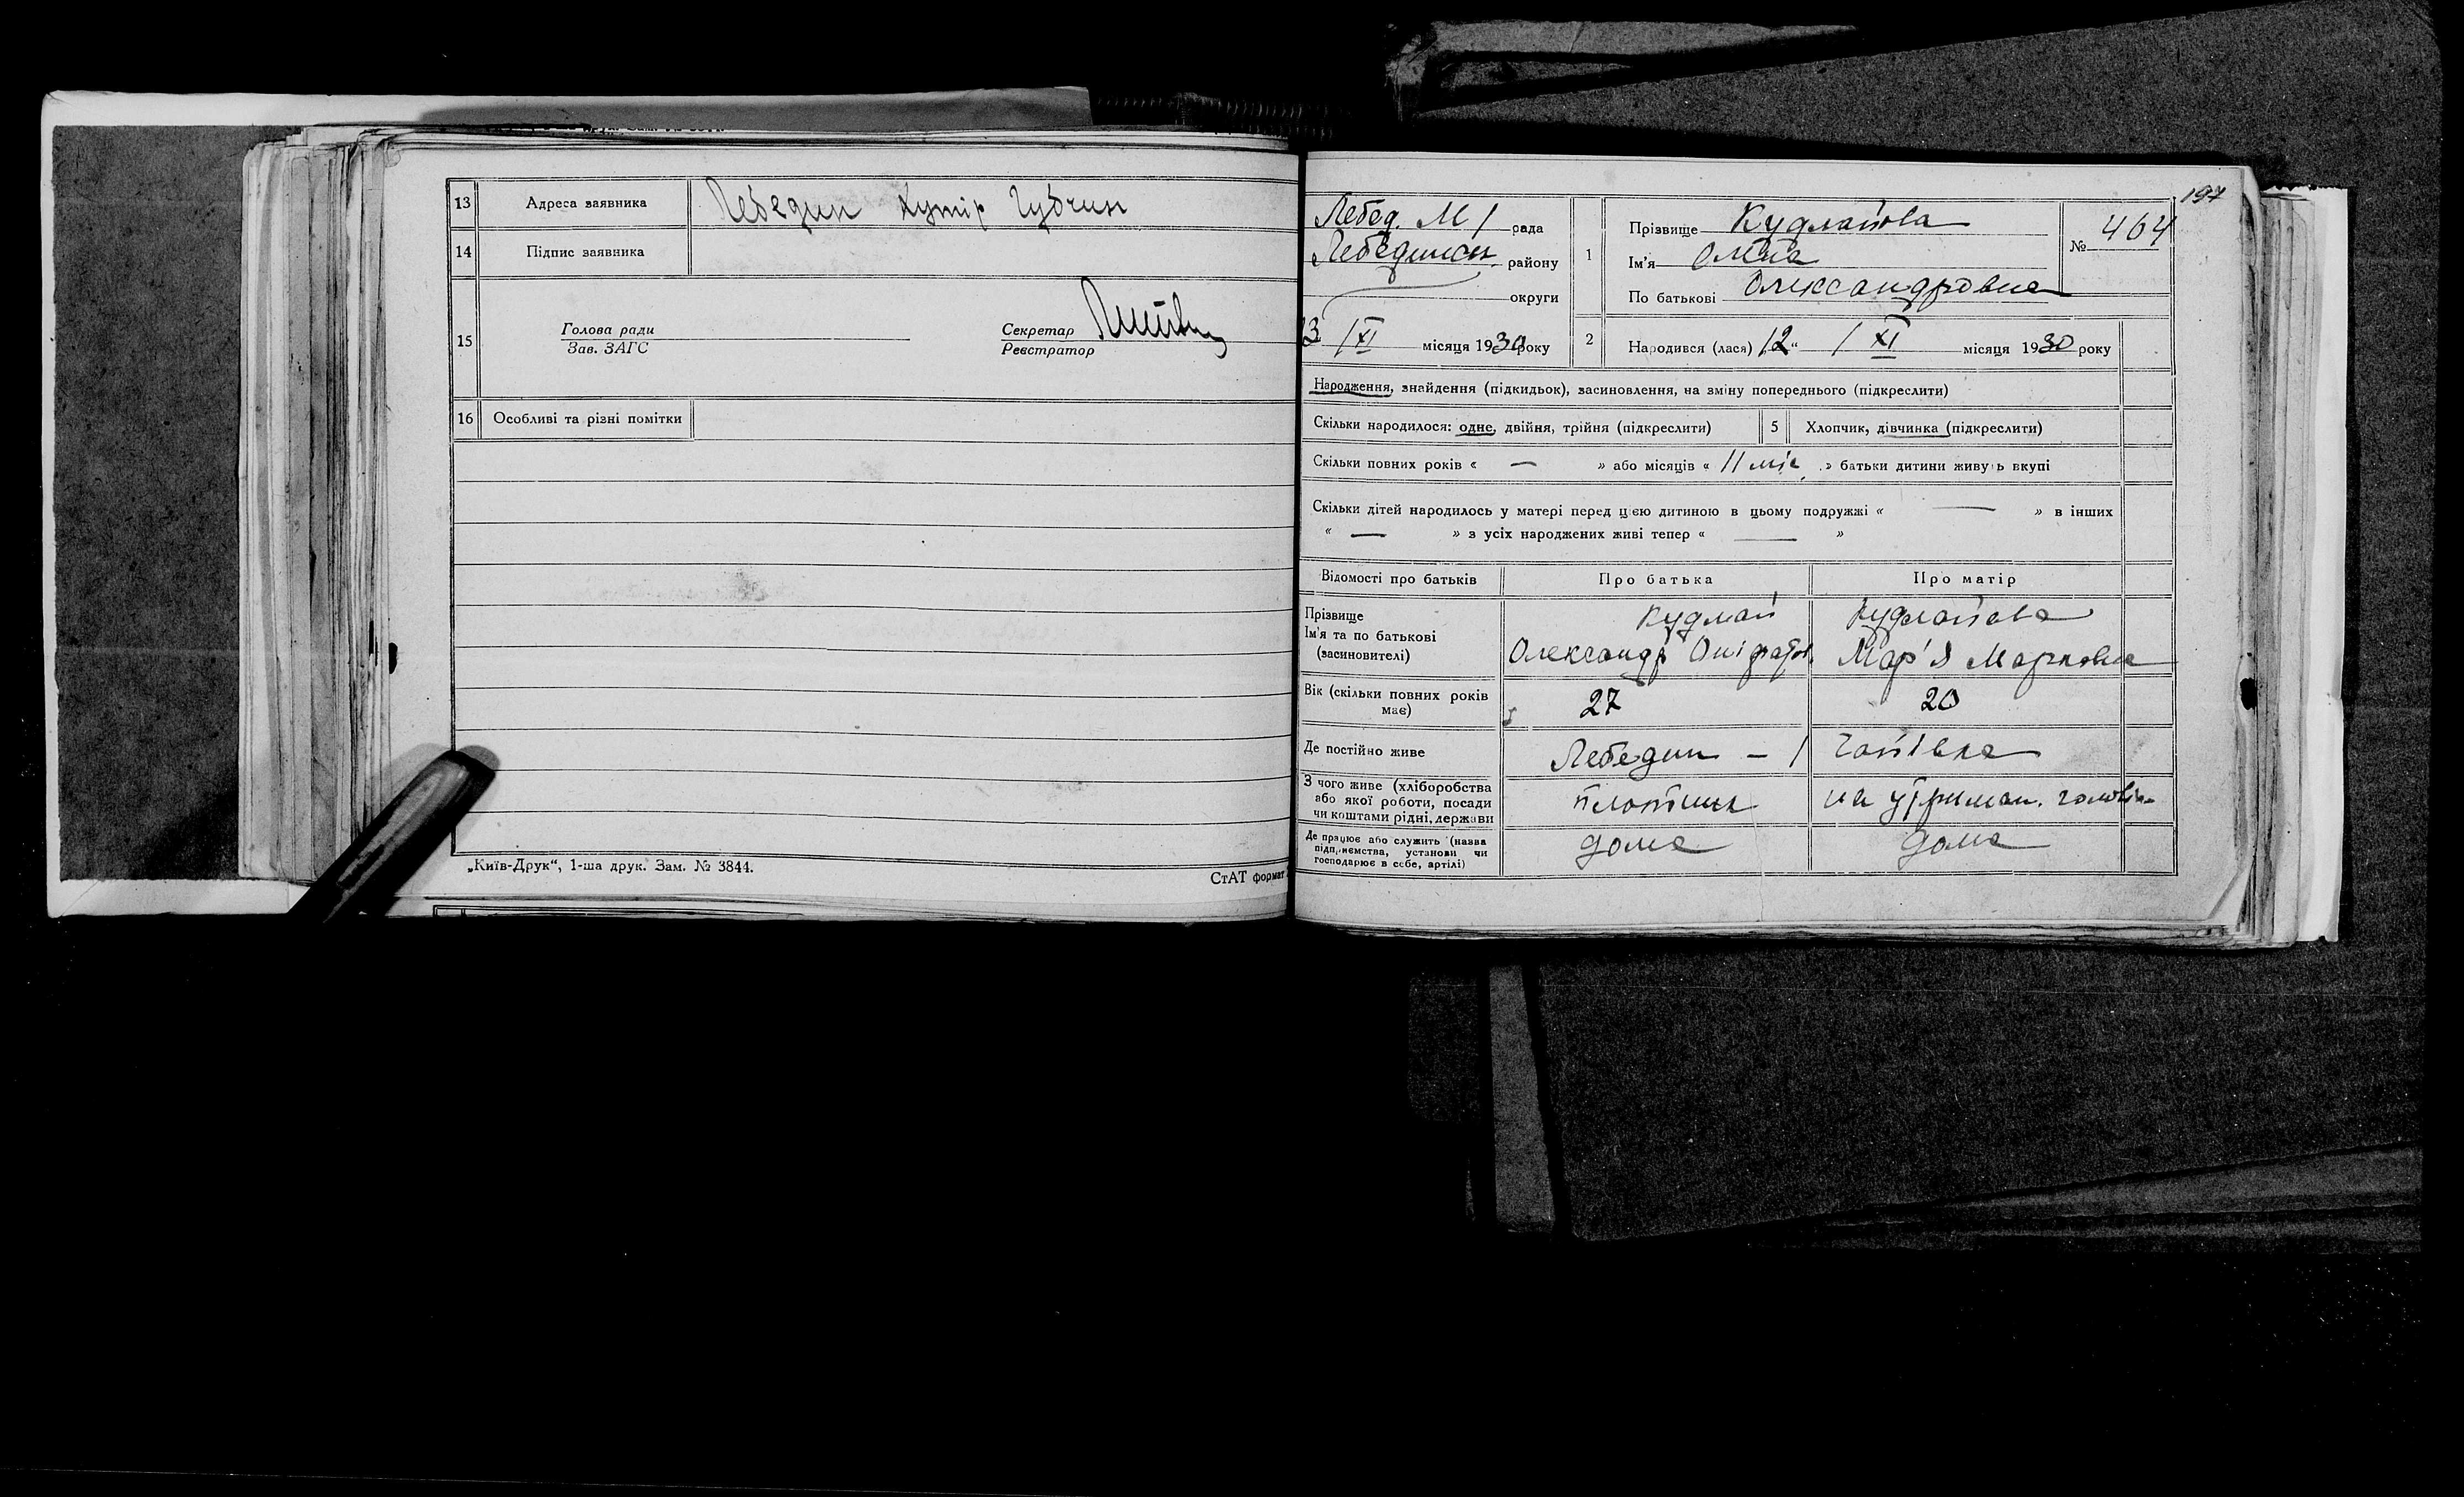 13 Адреса заявника Лебедин Хутір Губчин
14 Підпис заявника
15 Голова ради Секретар
Зав. ЗАГС Реєстратор
16 Особливі та різні помітки
„Київ-Друк“, 1-ша друк. Зам. № 3844.
СтАТ формат
197
Лебед. М 1 рада
Лебединськ. району
округи
3 / XI місяця 1930 року
1 Прізвище Кудлайова
№ 464
Ім'я
По батькові Олександровна
2 Народився (лася) „12“ / XI місяця 1930 року
Народження, знайдення (підкидьок), засиновлення, на зміну попереднього (підкреслити)
Скільки народилося: одне, двійня, трійня (підкреслити) 5 Хлопчик, дівчинка (підкреслити)
Скільки повних років « — » або місяців « 11 міс. » батьки дитини живуть вкупі
Скільки дітей народилось у матері перед цією дитиною в цьому подружжі « — » в інших
« — » з усіх народжених живі тепер « — »
Відомості про батьків Про батька Про матір
Прізвище Кудлай Кудлайова
Ім'я та по батькові Олександр Мар'я Марковна
(засиновителі)
Вік (скільки повних років має) 27 20
Де постійно живе Лебедин – 1
З чого живе (хліборобства
або якої роботи, посади плотник на утриман. чоловіка
чи коштами рідні, держави
Де працює або служить (назва
підприємства, установи чи дома дома
господарює в себе, артілі)